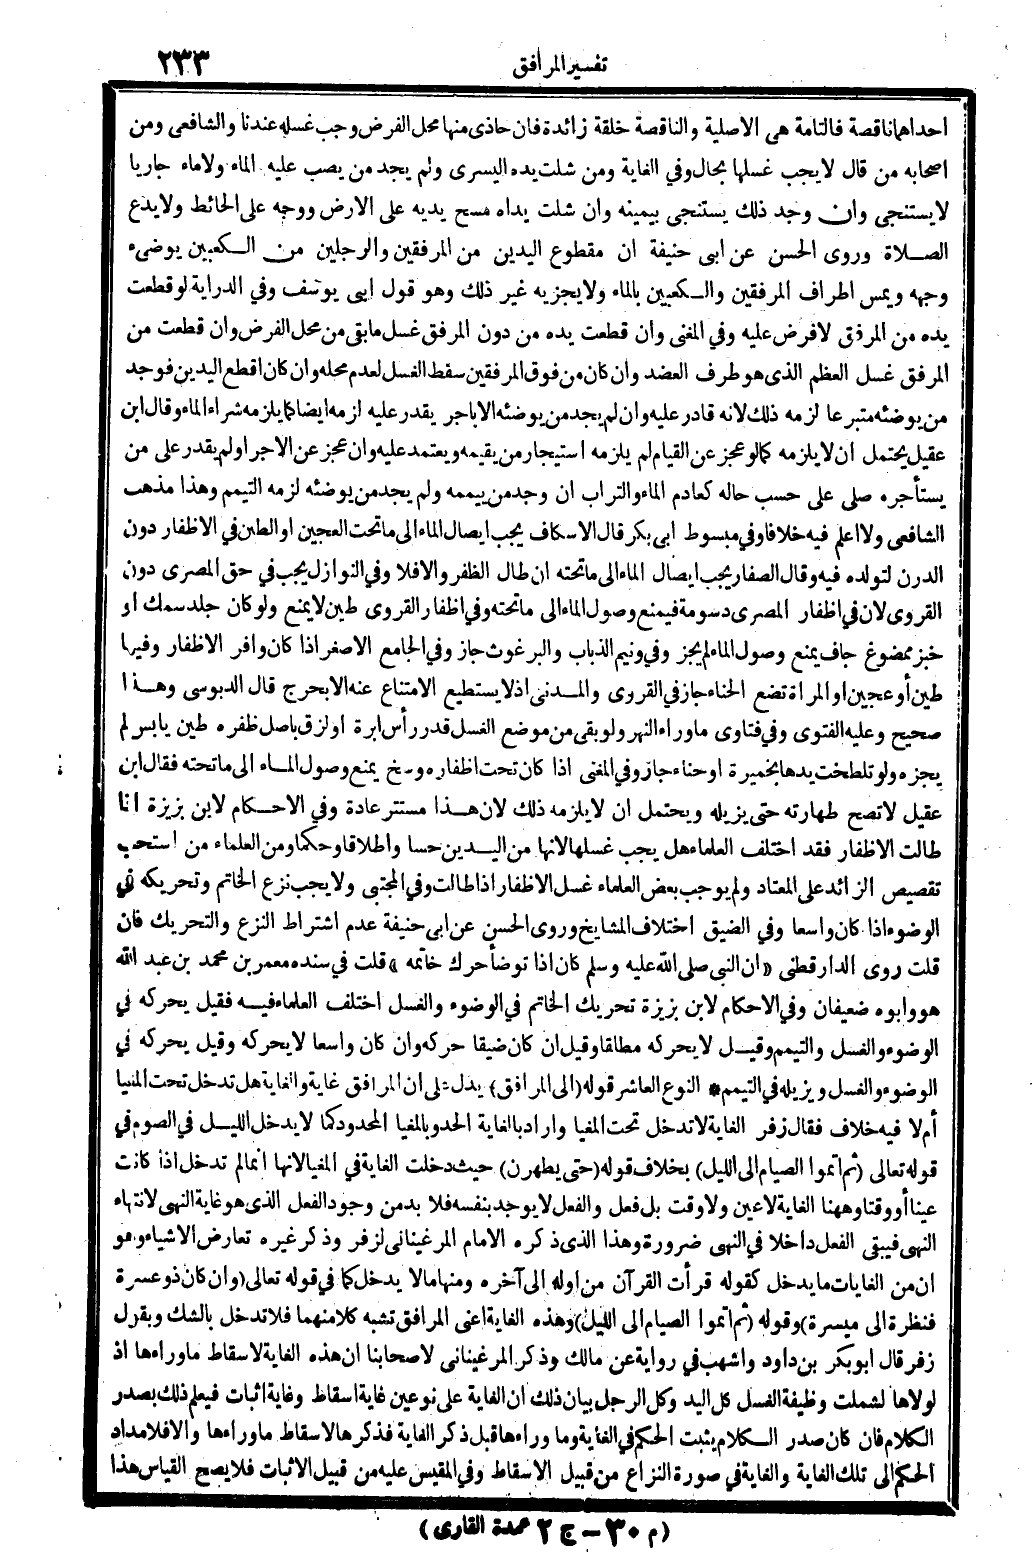 تفسير المرافق ٢٣٣
احداهما ناقصة فالتامة هي الاصلية والناقصة خلقة زائدة فان حاذى منها محل الفرض وجب غسله عندنا والشافعى ومن
اصحابه من قال لايجب غسلها بحال وفي الغاية ومن شلت يده اليسرى ولم يجد من يصب عليه الماء ولاماء جاريا
لايستنجى وان وجد ذلك يستنجى بيمينه وان شلت يداه مسح يديه على الارض ووجه على الحائط ولايدع
الصلاة وروى الحسن عن ابى حنيفة ان مقطوع اليدين من المرفقين والرجلين من الكعبين يوضىء
وجهه ويمس اطراف المرفقين والكعبين بالماء ولايجزيه غير ذلك وهو قول ابى يوسف وفي الدراية لوقطعت
يده من المرفق لافرض عليه وفي المغنى وان قطعت يده من دون المرفق غسل مابقى من محل الفرض وان قطعت من
المرفق غسل العظم الذى هو طرف العضد وان كان من فوق المرفقين سقط الغسل لعدم محله وان كان اقطع اليدين فوجد
من يوضئه متبرعا لزمه ذلك لانه قادر عليه وان لم يجد من يوضئه الاباجر يقدر عليه لزمه ايضا كما يلزمه شراء الماء وقال ابن
عقيل يحتمل ان لايلزمه كمالو عجز عن القيام لم يلزمه استيجار من يقيمه ويعتمد عليه وان عجز عن الاجر اولم يقدر على من
يستأجره صلى على حسب حاله كعادم الماء والتراب ان وجد من ييممه ولم يجد من يوضئه لزمه التيمم وهذا مذهب
الشافعى ولا اعلم فيه خلافا وفي مبسوط ابى بكر قال الاسكاف يجب ايصال الماء الى ماتحت العجين او الطين في الاظفار دون
الدرن لتولده فيه وقال الصفار يجب ايصال الماء الى ماتحته ان طال الظفر والافلا وفي النوازل يجب في حق المصرى دون
القروى لان في اظفار المصرى دسومة فيمنع وصول الماء الى ماتحته وفي اظفار القروى طين لايمنع ولو كان جلد سمك او
خبز ممضوغ جاف يمنع وصول الماء لم يجز وفي ونيم الذباب والبرغوث جاز وفي الجامع الاصغر اذا كان وافر الاظفار وفيها
طين أو عجين او المرأة تضع الحناء جاز في القروى والمدنى اذ لايستطيع الامتناع عنه الابحرج قال الدبوسى وهذا
صحيح وعليه الفتوى وفي فتاوى ماوراء النهر ولو بقى من موضع الغسل قدر رأس ابرة اولزق باصل ظفره طين يابس لم
يجزه ولو تلطخت يدها بخميرة او حناء جاز وفي المغنى اذا كان تحت اظفاره وسخ يمنع وصول الماء الى ماتحته فقال ابن
عقيل لاتصح طهارته حتى يزيله ويحتمل ان لايلزمه ذلك لان هذا مستتر عادة وفي الاحكام لابن بزيزة اذا
طالت الاظفار فقد اختلف العلماء هل يجب غسلها لانها من اليدين حسا واطلاقا وحكما ومن العلماء من استحب
تقصيص الزائد على المعتاد ولم يوجب بعض العلماء غسل الاظفار اذا طالت وفي المجتبى ولايجب نزع الخاتم وتحريكه في
الوضوء اذا كان واسعا وفي الضيق اختلاف المشايخ وروى الحسن عن ابى حنيفة عدم اشتراط النزع والتحريك فان
قلت روى الدارقطنى «ان النبى صلى الله عليه وسلم كان اذا توضأ حرك خاتمه» قلت في سنده معمر بن محمد بن عبد الله
هو وابوه ضعيفان وفي الاحكام لابن بزيزة تحريك الخاتم في الوضوء والغسل اختلف العلماء فيه فقيل يحركه في
الوضوء والغسل والتيمم وقيل لايحركه مطلقا وقيل ان كان ضيقا حركه وان كان واسعا لايحركه وقيل يحركه في
الوضوء والغسل ويزيله في التيمم * النوع العاشر قوله (الى المرافق) يدل على ان المرافق غاية والغاية هل تدخل تحت المغيا
أم لا فيه خلاف فقال زفر الغاية لاتدخل تحت المغيا واراد بالغاية الحد وبالمغيا المحدود كما لايدخل الليل في الصوم في
قوله تعالى (ثم اتموا الصيام الى الليل) بخلاف قوله (حتى يطهرن) حيث دخلت الغاية في المغيا لانها انمالم تدخل اذا كانت
عينا أو وقتا وههنا الغاية لاعين ولاوقت بل فعل والفعل لايوجد بنفسه فلا بد من وجود الفعل الذى هو غاية النهى لانتهاء
النهى فيبقى الفعل داخلا في النهى ضرورة وهذا الذى ذكره الامام المرغينانى لزفر وذكر غيره تعارض الاشياء وهو
ان من الغايات مايدخل كقوله قرأت القرآن من اوله الى آخره ومنها مالا يدخل كما في قوله تعالى (وان كان ذو عسرة
فنظرة الى ميسرة) وقوله (ثم اتموا الصيام الى الليل) وهذه الغاية اعنى المرافق تشبه كلا منهما فلاتدخل بالشك وبقول
زفر قال ابوبكر بن داود واشهب في رواية عن مالك وذكر المرغينانى لاصحابنا ان هذه الغاية لاسقاط ماوراءها اذ
لولاها لشملت وظيفة الغسل كل اليد وكل الرجل بيان ذلك ان الغاية على نوعين غاية اسقاط وغاية اثبات فيعلم ذلك بصدر
الكلام فان كان صدر الكلام يثبت الحكم في الغاية وما وراءها قبل ذكر الغاية فذكرها لاسقاط ماوراءها والافلامداد
الحكم الى تلك الغاية والغاية في صورة النزاع من قبيل الاسقاط وفي المقيس عليه من قبيل الاثبات فلايصح القياس هذا
(م ٣٠ – ج ٢ عمدة القارى)